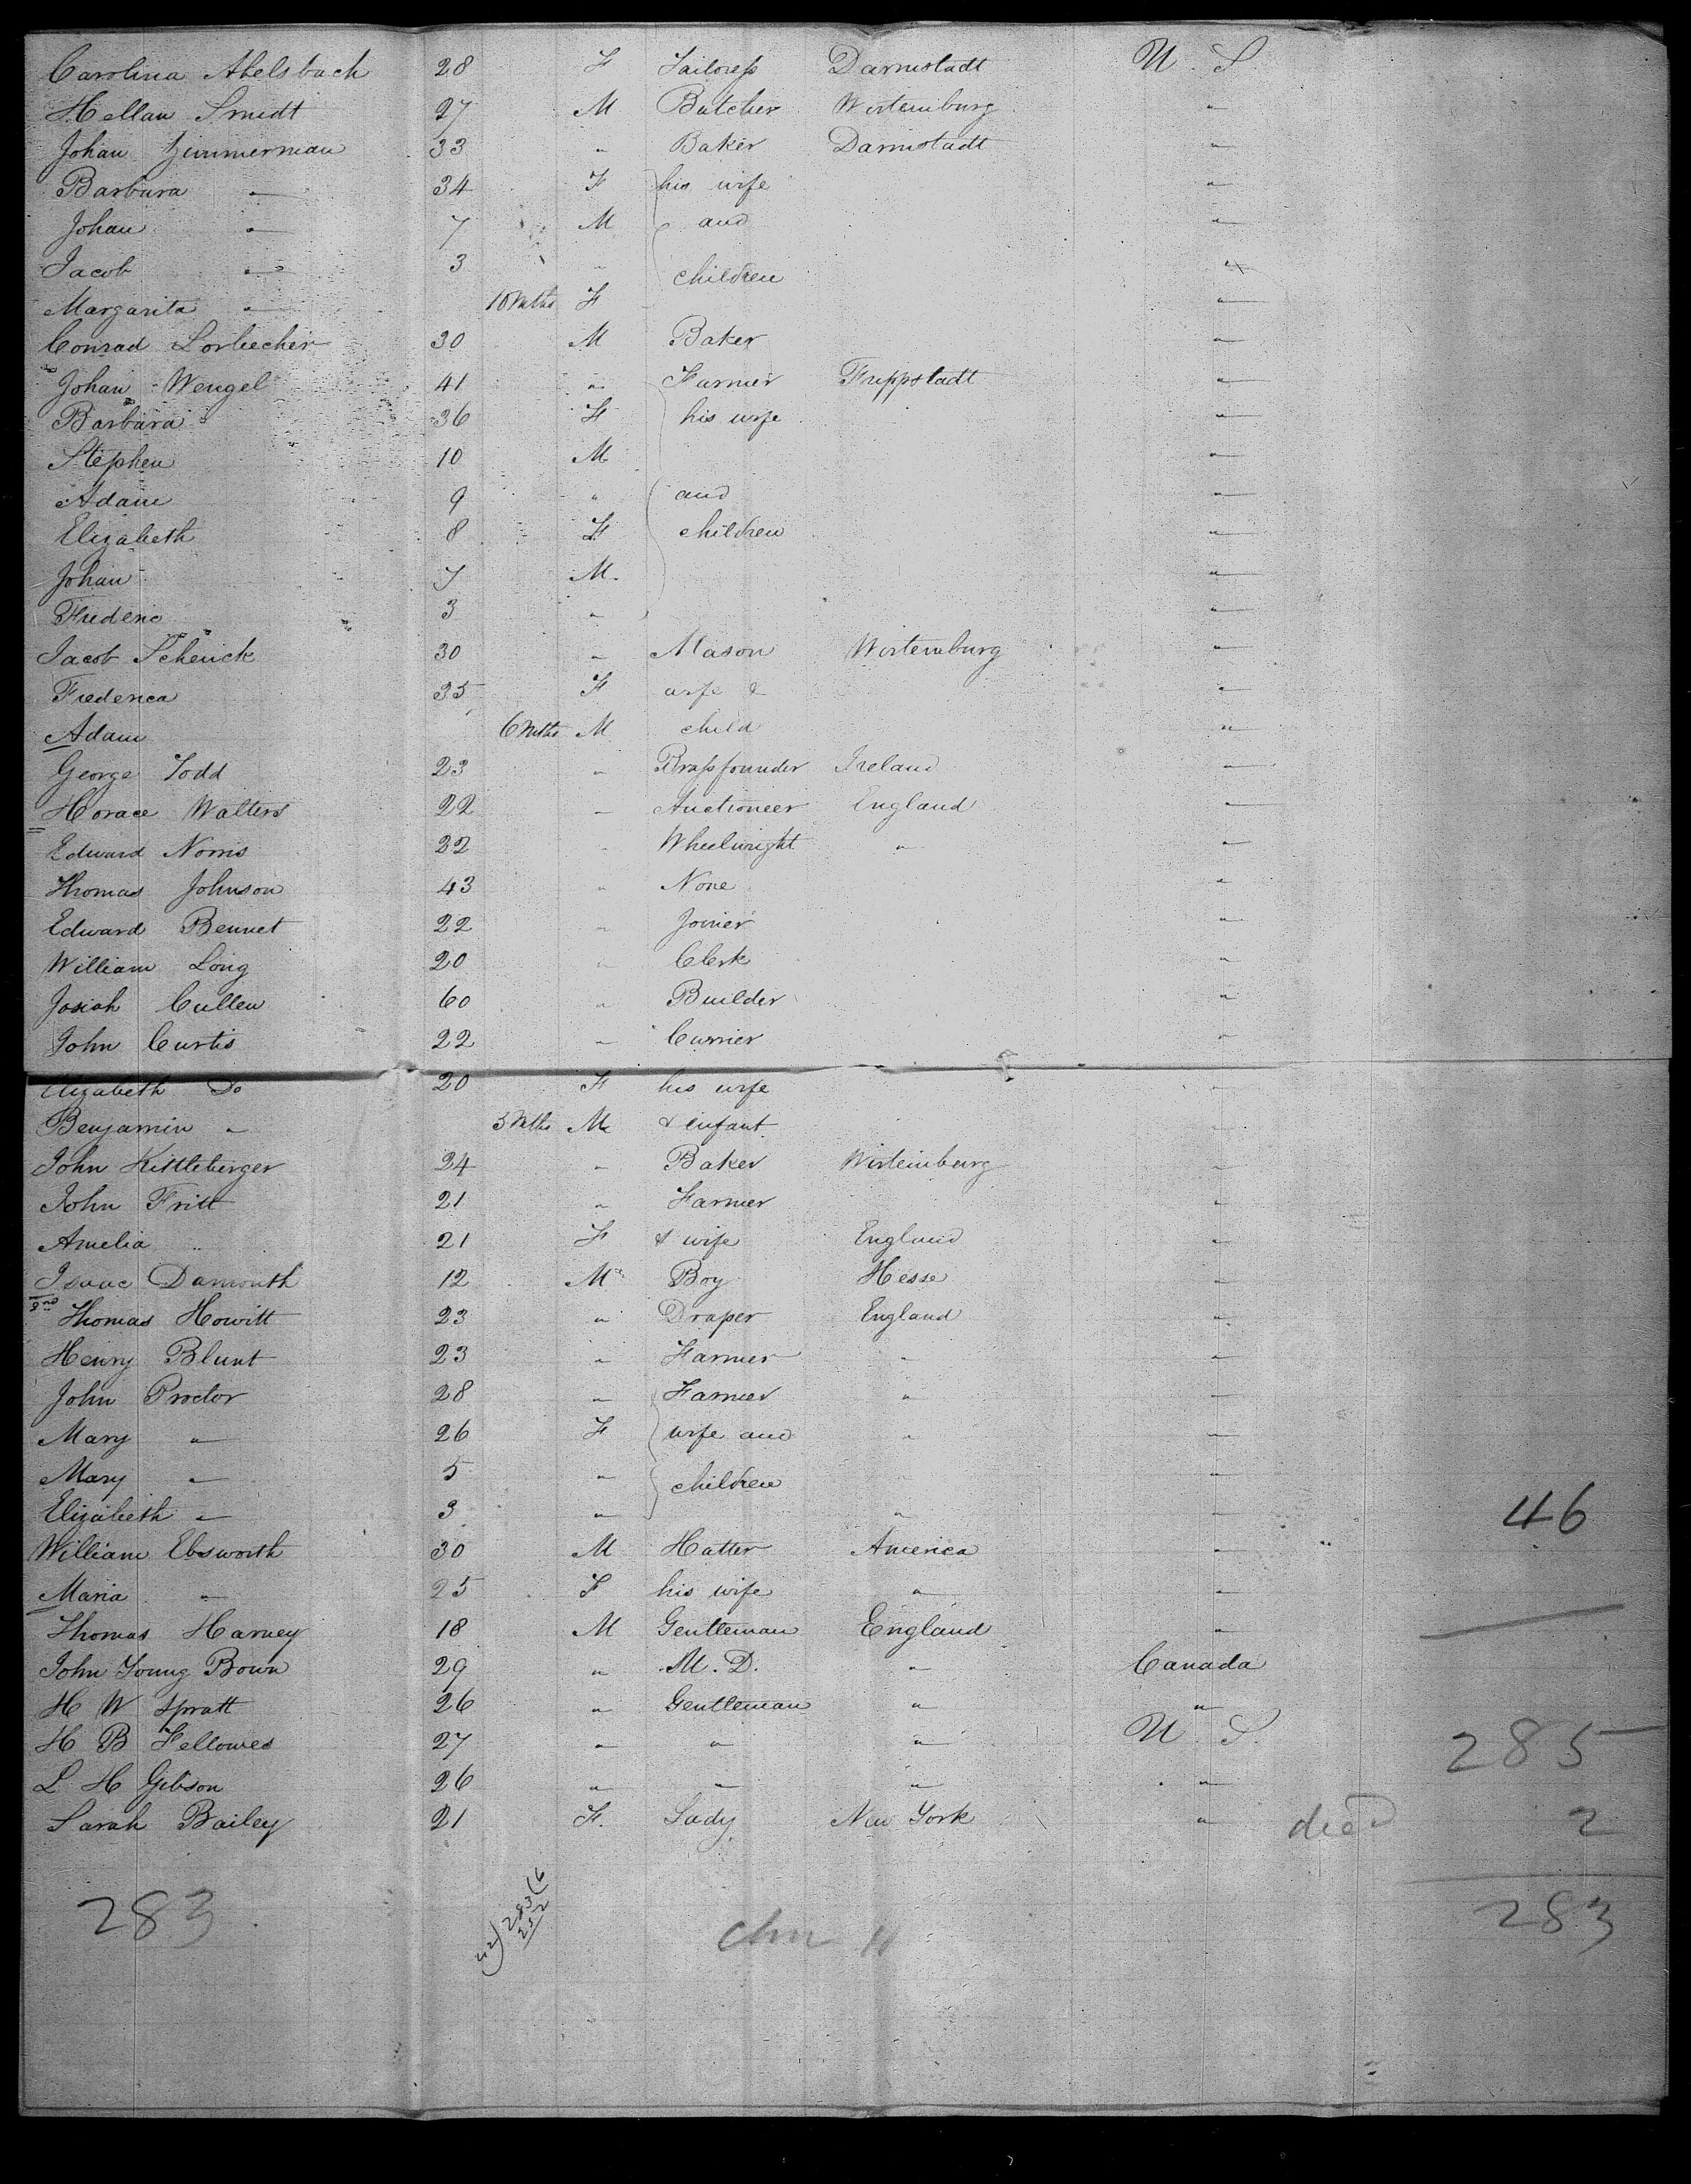 Carolina Abelsbach 28 F Tailoress Darmstadt U. S.
Hellan Smidt 27 M Butcher Wirtemburg "
Johan Zimmerman 33 " Baker Darmstadt "
Barbara " 34 F his wife "
Johan " 7 M and "
Jacob " 3 " children "
Margarita " 10 Mths F "
Conrad Lorbecher 30 M Baker "
Johan Wengel 41 " Farmer Frippstadt "
Barbara 36 F his wife "
Stephen 10 M "
Adam 9 " and "
Elizabeth 8 F children "
Johan 7 M. "
Frederic 3 " "
Jacob Schenck 30 " Mason Wirtemburg "
Frederica 35 F wife & "
Adam 6 Mths M child "
George Todd 23 " Brassfounder Ireland "
Horace Walters 22 " Auctioneer England "
Edward Norris 32 " Wheelwright " "
Thomas Johnson 43 " None "
Edward Bennet 22 " Joiner "
William Long 20 " Clerk "
Josiah Cullen 60 " Builder "
John Curtis 22 " Currier "
Elizabeth Do 20 F his wife "
Benjamin " 3 Mths M & infant "
John Kittleberger 24 " Baker Wirtemburg "
John Fritt 21 " Farmer "
Amelia " 21 F & wife England "
Isaac Damouth 12 M Boy Hesse "
2nd Thomas Howitt 23 " Draper England "
Henry Blunt 23 " Farmer " "
John Proctor 28 " Farmer " "
Mary " 26 F wife and " "
Mary " 5 " children "
Elizabeth " 3 " " "
46
William Ebsworth 30 M Hatter America "
Maria " 25 F his wife " "
Thomas Harvey 18 M Gentleman England "
John Young Bown 29 " M. D. " Canada
H W Spratt 26 " Gentleman " "
H B Fellowes 27 " " " U. S.
285
L H Gibson 26 " " " "
Sarah Bailey 21 F. Lady New York " died 2
283
42) 283 (6
252
283